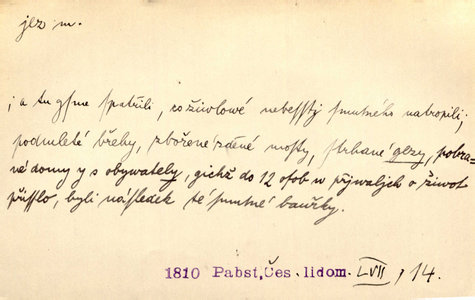 jez m.
; a tu gsme spatřili, co žiwlowé nebesstj smutného natropili;
podmleté břehy, zbořené zděné mosty, strhané gezy, pobra-
né domy y s obywately, gichž do 12 osob w přjwaljch o žiwot
přisslo, byli následek té smutné bauřky.
1810 Pabst, Čes. lidom. LVII, 14.